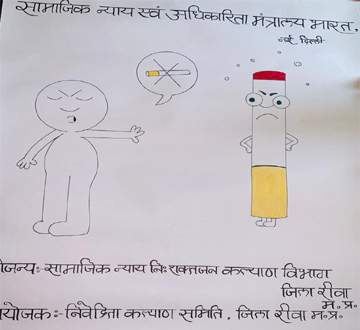 सामाजिक न्याय एवं अधिकारिता मंत्रालय भारत.
नई दिल्ली
ोजन्यः- सामाजिक न्याय निः शक्तजन कल्याण विभाग
जिला रीवा
म. प्र.
योजकः- निवेश्रिता कल्याण समिति. जिला रीवा म.प्र.